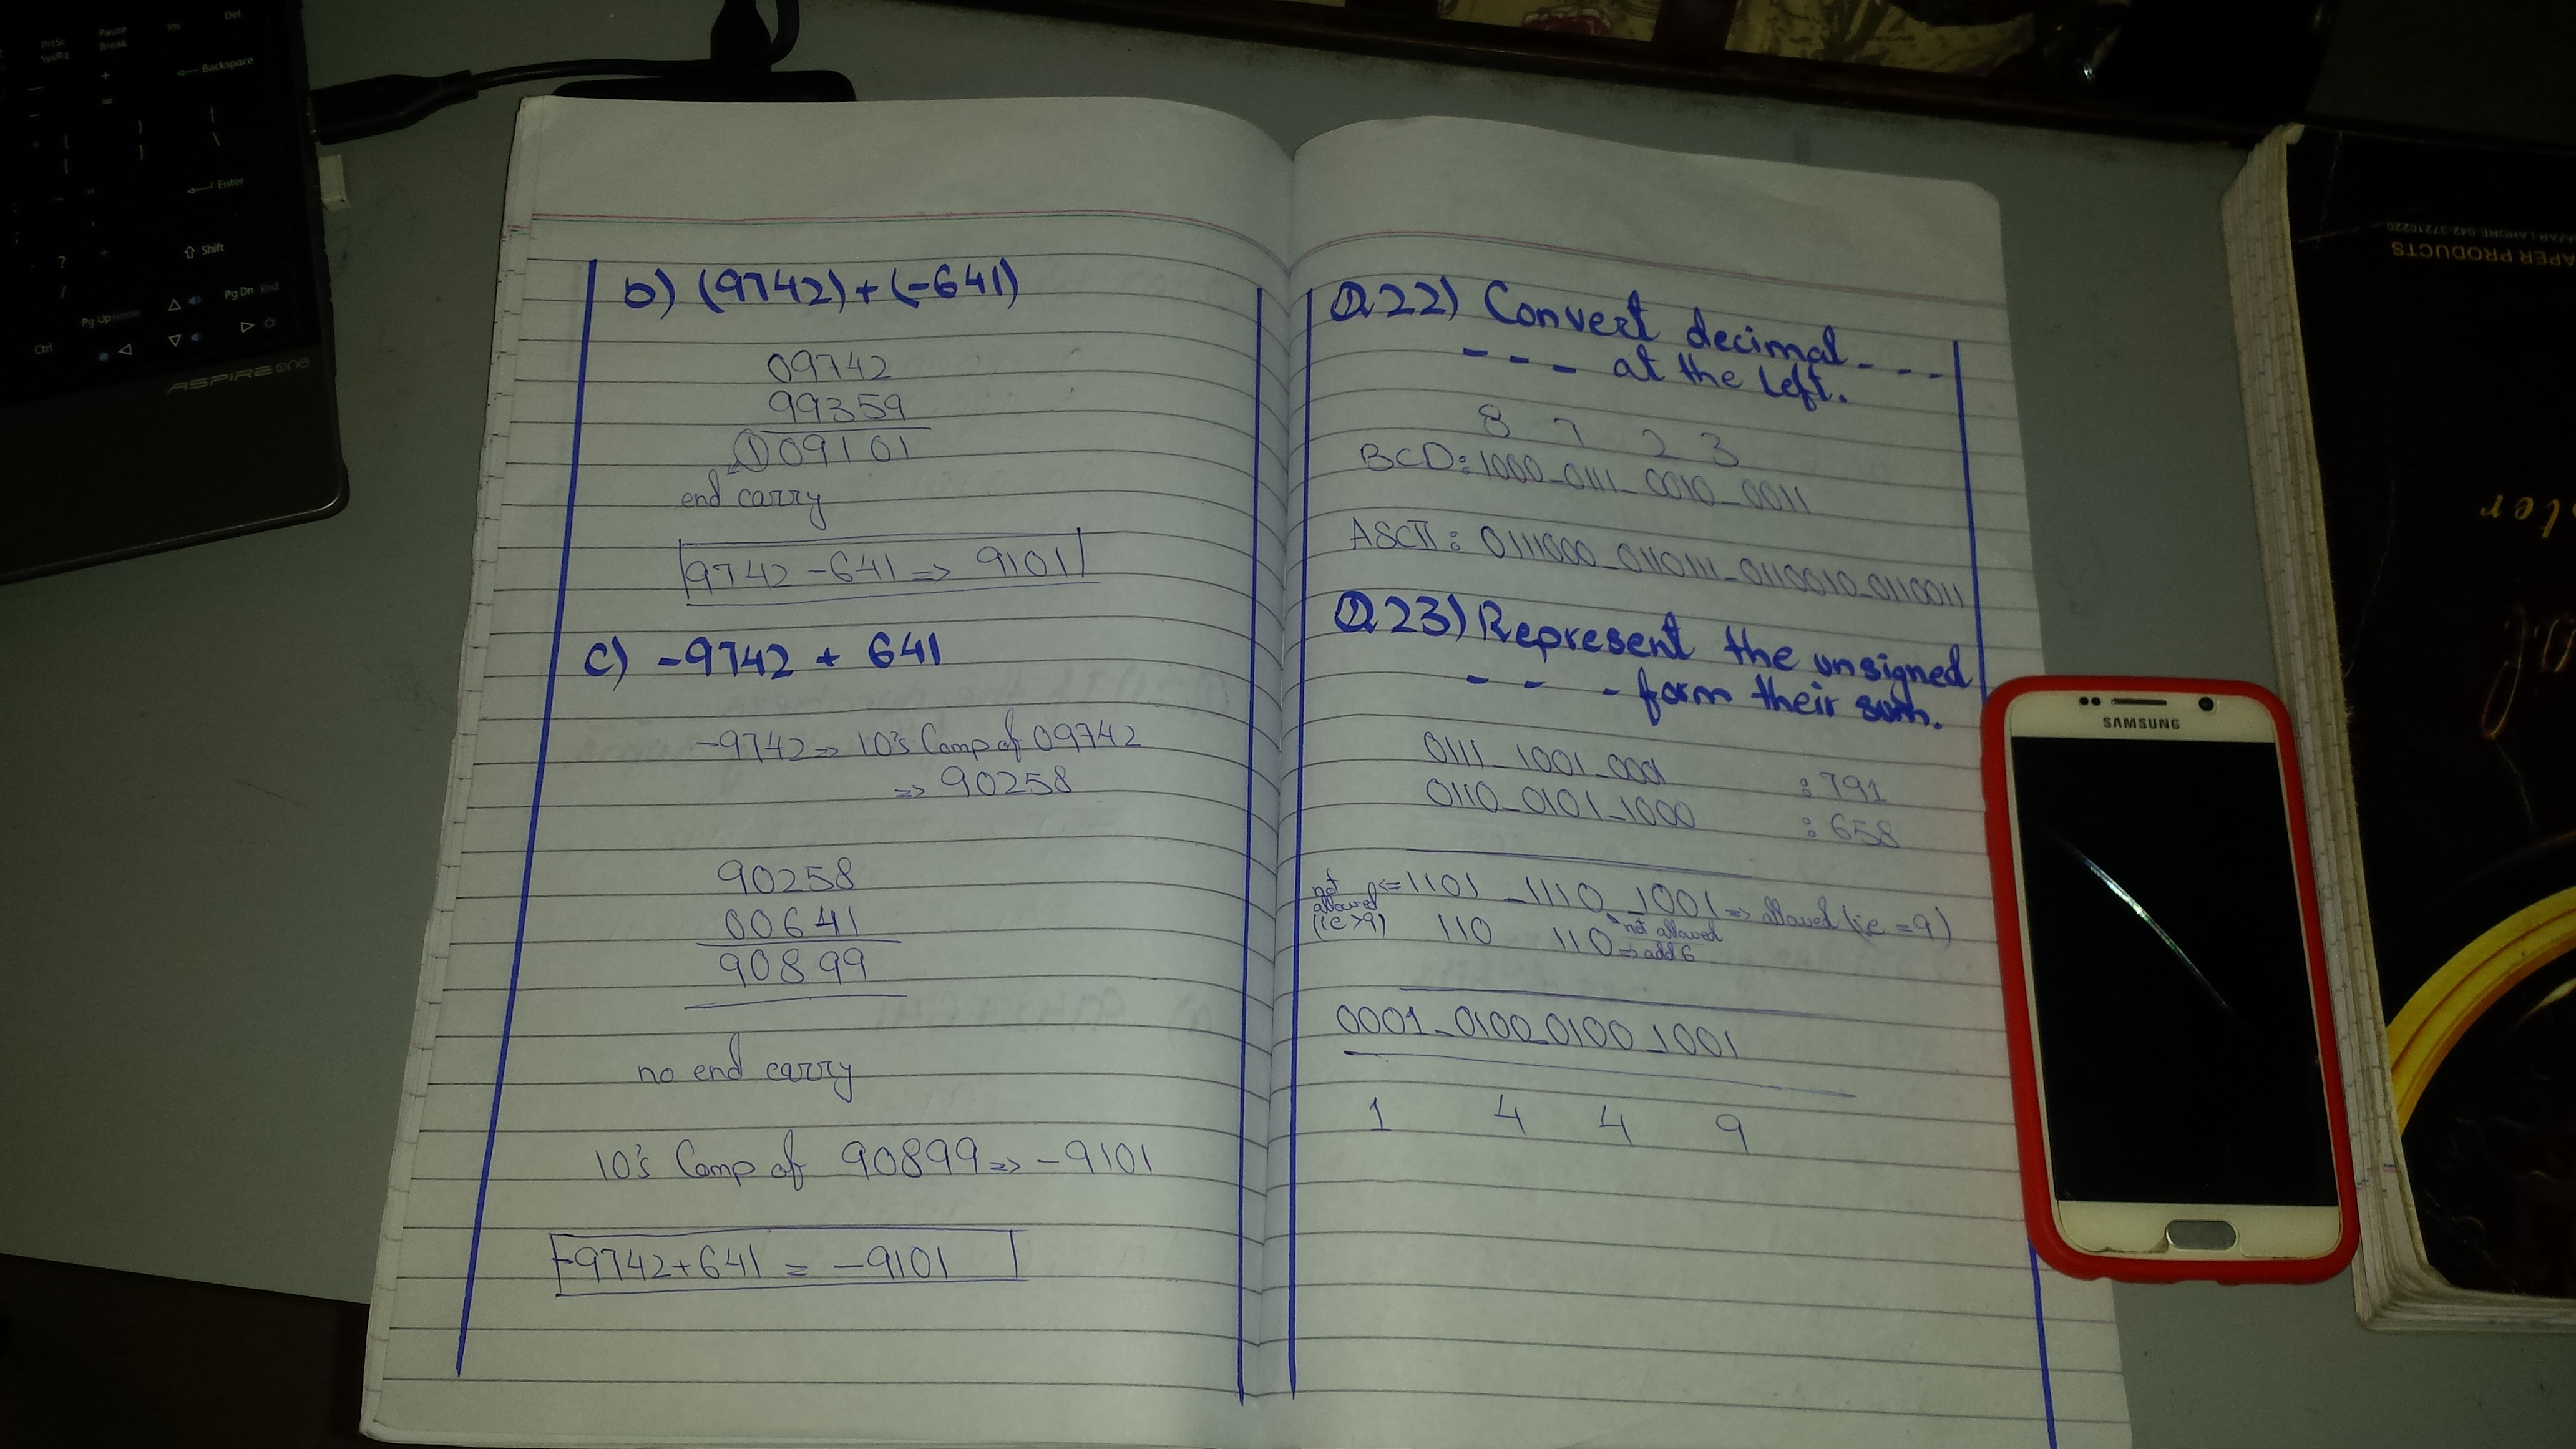 b) (9742)+(-641)
09742
99359
1)09101
end carry
9742-641 => 9101
c) -9742 + 641
-9742 => 10's Comp of 09742
=> 90258
90258
00641
90899
no end carry
10's Comp of 90899 => -9101
-9742+641 = -9101
Q.22) Convert decimal - - -
- - - at the left.
8 7 2 3
BCD: 1000_0111_0010_0011
ASCII: 0111000_0110111_0110010_0110011
Q.23) Represent the unsigned
- - - form their sum.
0111_1001_0001 : 791
0110_0101_1000 : 658
not allowed (ie >9) <= 1101_1110_1001 => allowed (ie =9)
not allowed
110 110 => add 6
0001_0100_0100_1001
1 4 4 9
SAMSUNG
ASPIRE one
Ctrl
Pg Up
Home
Pg Dn
End
Shift
Enter
Backspace
PrtSc
SysRq
Pause
Break
Ins
Del
APER PRODUCTS
AZAR LAHORE.042-37210220